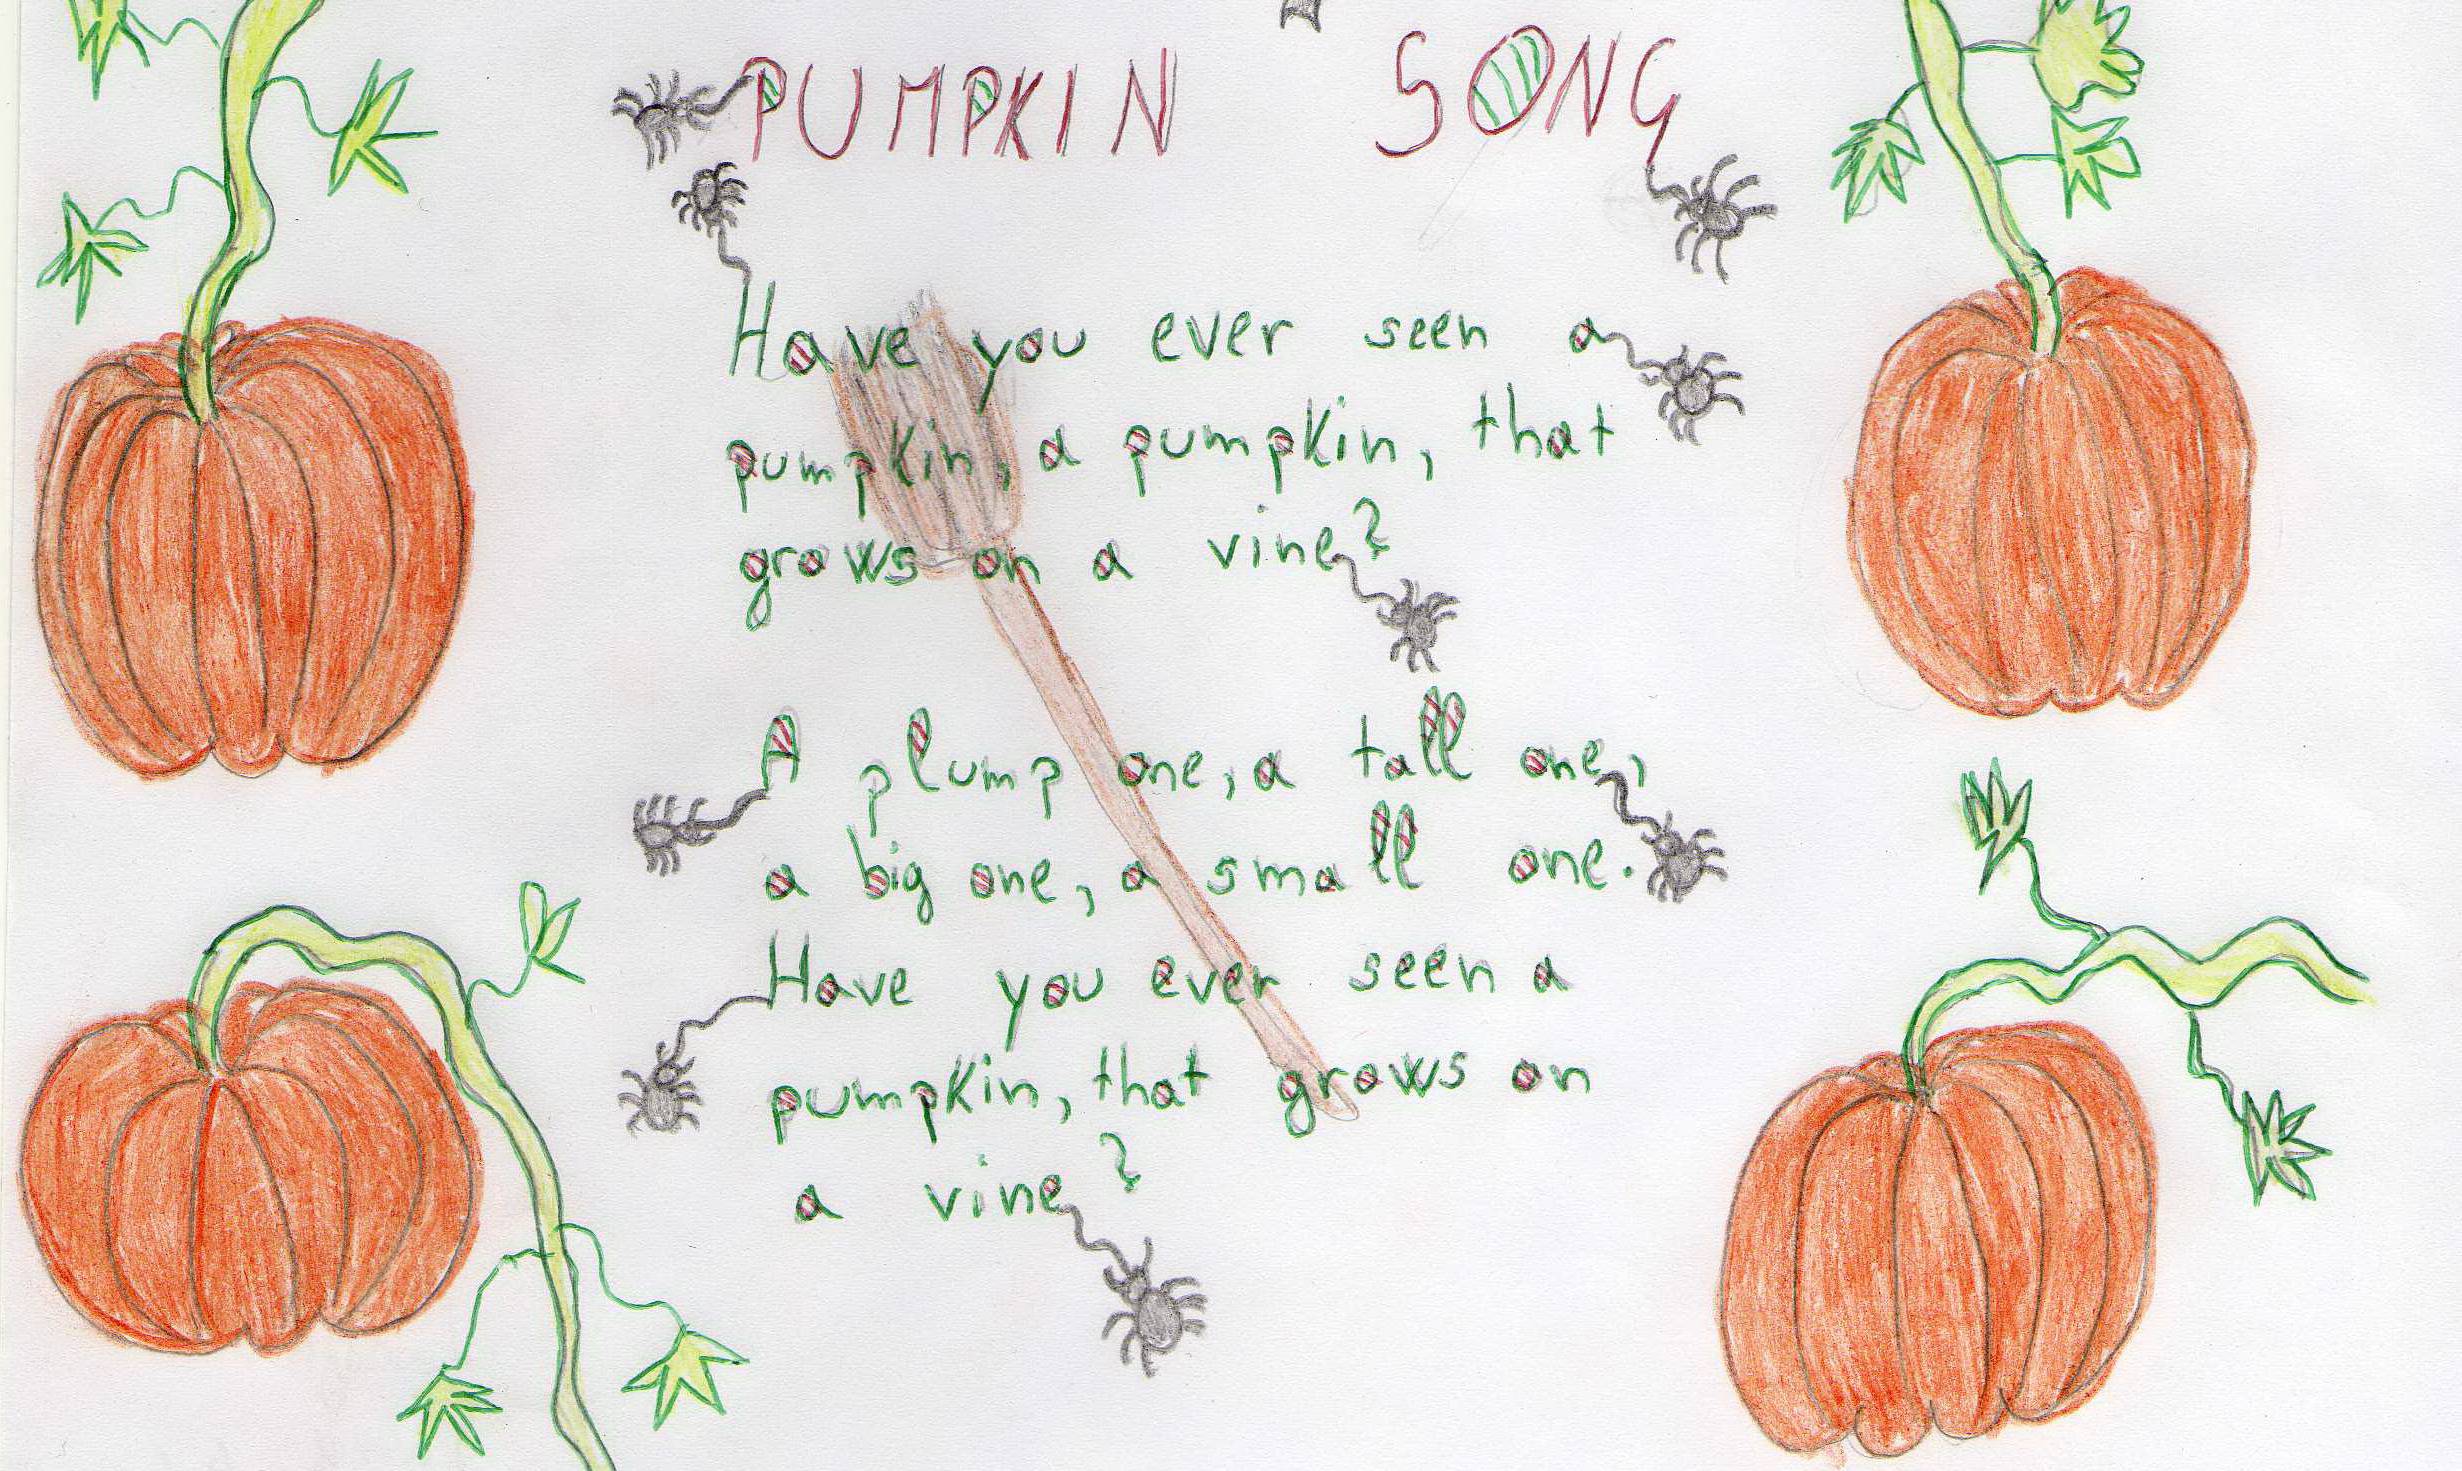 PUMPKIN SONG
Have you ever seen a
pumpkin, a pumpkin, that
grows on a vine?
A plump one, a tall one,
a big one, a small one.
Have you ever seen a
pumpkin, that grows on
a vine?